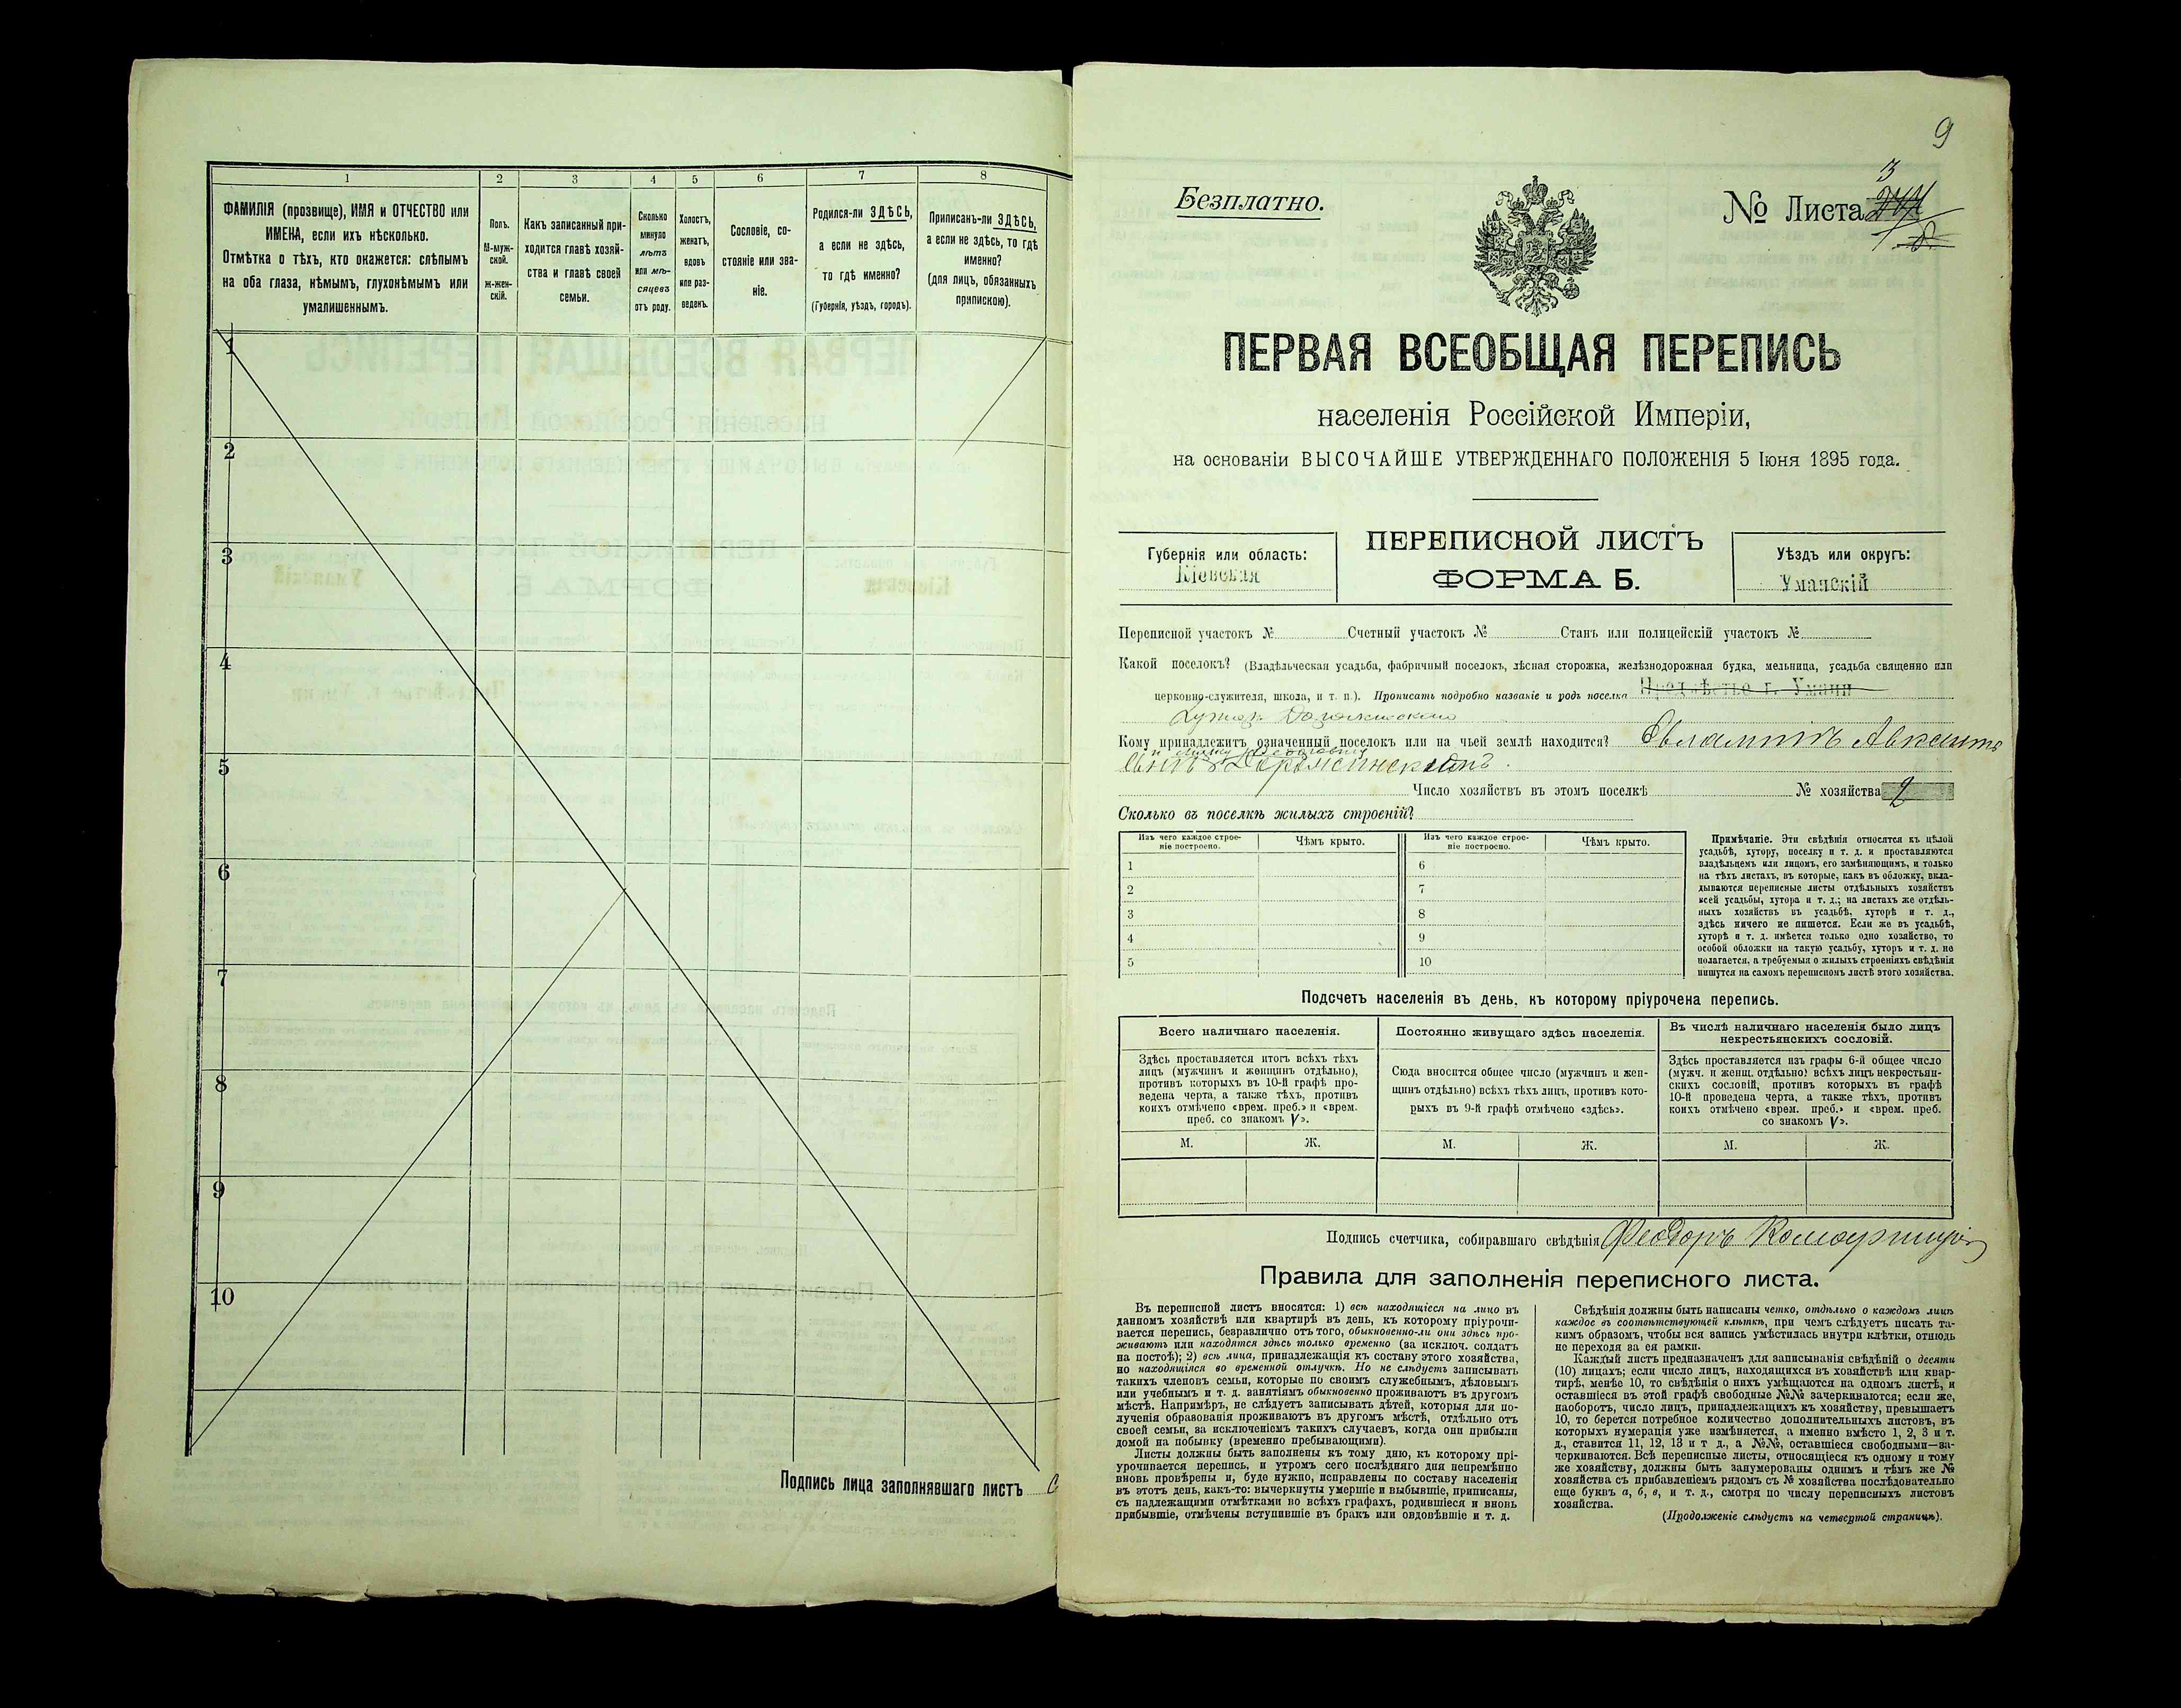 1
2
3
4
5
6
7
8
ФАМИЛІЯ (прозвище), ИМЯ и ОТЧЕСТВО или
ИМЕНА, если ихъ нѣсколько.
Отмѣтка о тѣхъ, кто окажется: слѣпымъ
на оба глаза, нѣмымъ, глухонѣмымъ или
умалишеннымъ.
Полъ.
М-муж-
ской.
ж-жен-
скій.
Какъ записанный при-
ходится главѣ хозяй-
ства и главѣ своей
семьи.
Сколько
минуло
лѣтъ
или мѣ-
сяцевъ
отъ роду.
Холостъ,
женатъ,
вдовъ
или раз-
веденъ.
Сословіе, со-
стояніе или зва-
ніе.
Родился-ли ЗДѢСЬ,
а если не здѣсь,
то гдѣ именно?
(Губернія, уѣздъ, городъ).
Приписанъ-ли ЗДѢСЬ,
а если не здѣсь, то гдѣ
именно?
(для лицъ, обязанныхъ
припискою).
1
2
3
4
5
6
7
8
9
10
Подпись лица заполнявшаго листъ
9
Безплатно.
3
№ Листа
ПЕРВАЯ ВСЕОБЩАЯ ПЕРЕПИСЬ
населенія Россійской Имперіи,
на основаніи ВЫСОЧАЙШЕ УТВЕРЖДЕННАГО ПОЛОЖЕНІЯ 5 Іюня 1895 года.
Губернія или область:
Кіевская
ПЕРЕПИСНОЙ ЛИСТЪ
ФОРМА Б.
Уѣздъ или округъ:
Уманскій
Переписной участокъ № Счетный участокъ № Станъ или полицейскій участокъ №
Какой поселокъ? (Владѣльческая усадьба, фабричный поселокъ, лѣсная сторожка, желѣзнодорожная будка, мельница, усадьба священно или
церковно-служителя, школа, и т. п.). Прописать подробно названіе и родъ поселка Предмѣстье г. Умани
Кому принадлежитъ означенный поселокъ или на чьей землѣ находится?
Число хозяйствъ въ этомъ поселкѣ № хозяйства 2
Сколько въ поселкѣ жилыхъ строеній?
Изъ чего каждое строе-
ніе построено.
Чѣмъ крыто.
Изъ чего каждое строе-
ніе построено.
Чѣмъ крыто.
1
2
3
4
5
6
7
8
9
10
Примѣчаніе. Эти свѣдѣнія относятся къ цѣлой
усадьбѣ, хутору, поселку и т. д. и проставляются
владѣльцемъ или лицомъ, его замѣняющимъ, и только
на тѣхъ листахъ, въ которые, какъ въ обложку, вкла-
дываются переписные листы отдѣльныхъ хозяйствъ
всей усадьбы, хутора и т. д.; на листахъ же отдѣль-
ныхъ хозяйствъ въ усадьбѣ, хуторѣ и т. д.,
здѣсь ничего не пишется. Если же въ усадьбѣ,
хуторѣ и т. д. имѣется только одно хозяйство, то
особой обложки на такую усадьбу, хуторъ и т. д. не
полагается, а требуемыя о жилыхъ строеніяхъ свѣдѣнія
пишутся на самомъ переписномъ листѣ этого хозяйства.
Подсчетъ населенія въ день, къ которому пріурочена перепись.
Всего наличнаго населенія.
Здѣсь проставляется итогъ всѣхъ тѣхъ
лицъ (мужчинъ и женщинъ отдѣльно),
противъ которыхъ въ 10-й графѣ про-
ведена черта, а также тѣхъ, противъ
коихъ отмѣчено «врем. преб.» и «врем.
преб. со знакомъ V».
Постоянно живущаго здѣсь населенія.
Сюда вносится общее число (мужчинъ и жен-
щинъ отдѣльно) всѣхъ тѣхъ лицъ, противъ кото-
рыхъ въ 9-й графѣ отмѣчено «здѣсь».
Въ числѣ наличнаго населенія было лицъ
некрестьянскихъ сословій.
Здѣсь проставляется изъ графы 6-й общее число
(мужч. и женщ. отдѣльно) всѣхъ лицъ некрестьян-
скихъ сословій, противъ которыхъ въ графѣ
10-й проведена черта, а также тѣхъ, противъ
коихъ отмѣчено «врем. преб.» и «врем. преб.
со знакомъ V».
М. Ж. М. Ж. М. Ж.
Подпись счетчика, собиравшаго свѣдѣнія Феодоръ
Правила для заполненія переписного листа.
Въ переписной листъ вносятся: 1) всѣ находящіеся на лицо въ
данномъ хозяйствѣ или квартирѣ въ день, къ которому пріурочи-
вается перепись, безразлично отъ того, обыкновенно-ли они здѣсь про-
живаютъ или находятся здѣсь только временно (за исключ. солдатъ
на постоѣ); 2) всѣ лица, принадлежащія къ составу этого хозяйства,
но находящіяся во временной отлучкѣ. Но не слѣдуетъ записывать
такихъ членовъ семьи, которые по своимъ служебнымъ, дѣловымъ
или учебнымъ и т. д. занятіямъ обыкновенно проживаютъ въ другомъ
мѣстѣ. Напримѣръ, не слѣдуетъ записывать дѣтей, которыя для по-
лученія образованія проживаютъ въ другомъ мѣстѣ, отдѣльно отъ
своей семьи, за исключеніемъ такихъ случаевъ, когда они прибыли
домой на побывку (временно пребывающими).
Листы должны быть заполнены къ тому дню, къ которому прі-
урочивается перепись, и утромъ сего послѣдняго дня непремѣнно
вновь провѣрены и, буде нужно, исправлены по составу населенія
въ этотъ день, какъ-то: вычеркнуты умершіе и выбывшіе, приписаны,
съ надлежащими отмѣтками во всѣхъ графахъ, родившіеся и вновь
прибывшіе, отмѣчены вступившіе въ бракъ или овдовѣвшіе и т. д.
Свѣдѣнія должны быть написаны четко, отдѣльно о каждомъ лицѣ
каждое въ соотвѣтствующей клѣткѣ, при чемъ слѣдуетъ писать та-
кимъ образомъ, чтобы вся запись умѣстилась внутри клѣтки, отнюдь
не переходя за ея рамки.
Каждый листъ предназначенъ для записыванія свѣдѣній о десяти
(10) лицахъ; если число лицъ, находящихся въ хозяйствѣ или квар-
тирѣ, менѣе 10, то свѣдѣнія о нихъ умѣщаются на одномъ листѣ, и
оставшіеся въ этой графѣ свободные №№ зачеркиваются; если же,
наоборотъ, число лицъ, принадлежащихъ къ хозяйству, превышаетъ
10, то берется потребное количество дополнительныхъ листовъ, въ
которыхъ нумерація уже измѣняется, а именно вмѣсто 1, 2, 3 и т.
д., ставится 11, 12, 13 и т д., а №№, оставшіеся свободными—за-
черкиваются. Всѣ переписные листы, относящіеся къ одному и тому
же хозяйству, должны быть занумерованы однимъ и тѣмъ же №
хозяйства съ прибавленіемъ рядомъ съ № хозяйства послѣдовательно
еще буквъ а, б, в, и т. д., смотря по числу переписныхъ листовъ
хозяйства.
(Продолженіе слѣдуетъ на четвертой страницѣ).